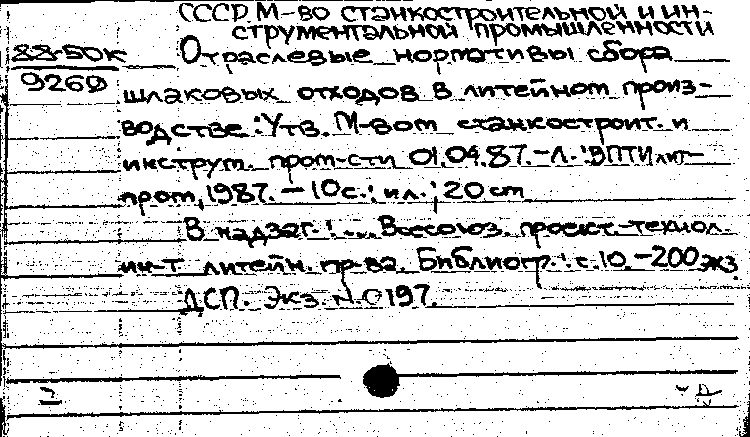 СССР. М-во станкостроительной и ин-
струментальной промышленности
88-50к
9269
Отраслевые нормативы сбора
шлаковых отходов в литейном произ-
водстве: Утв. М-вом станкостроит. и
инструм. пром-сти 01.04.87.-Л.: ВПТИлит-
пром, 1987. - 10 с.: ил.; 20 см
В надзаг.: ... Всесоюз. проект.-технол.
ин-т литейн. пр-ва. Библиогр.: с. 10. - 200 экз.
ДСП. Экз. N 0197.